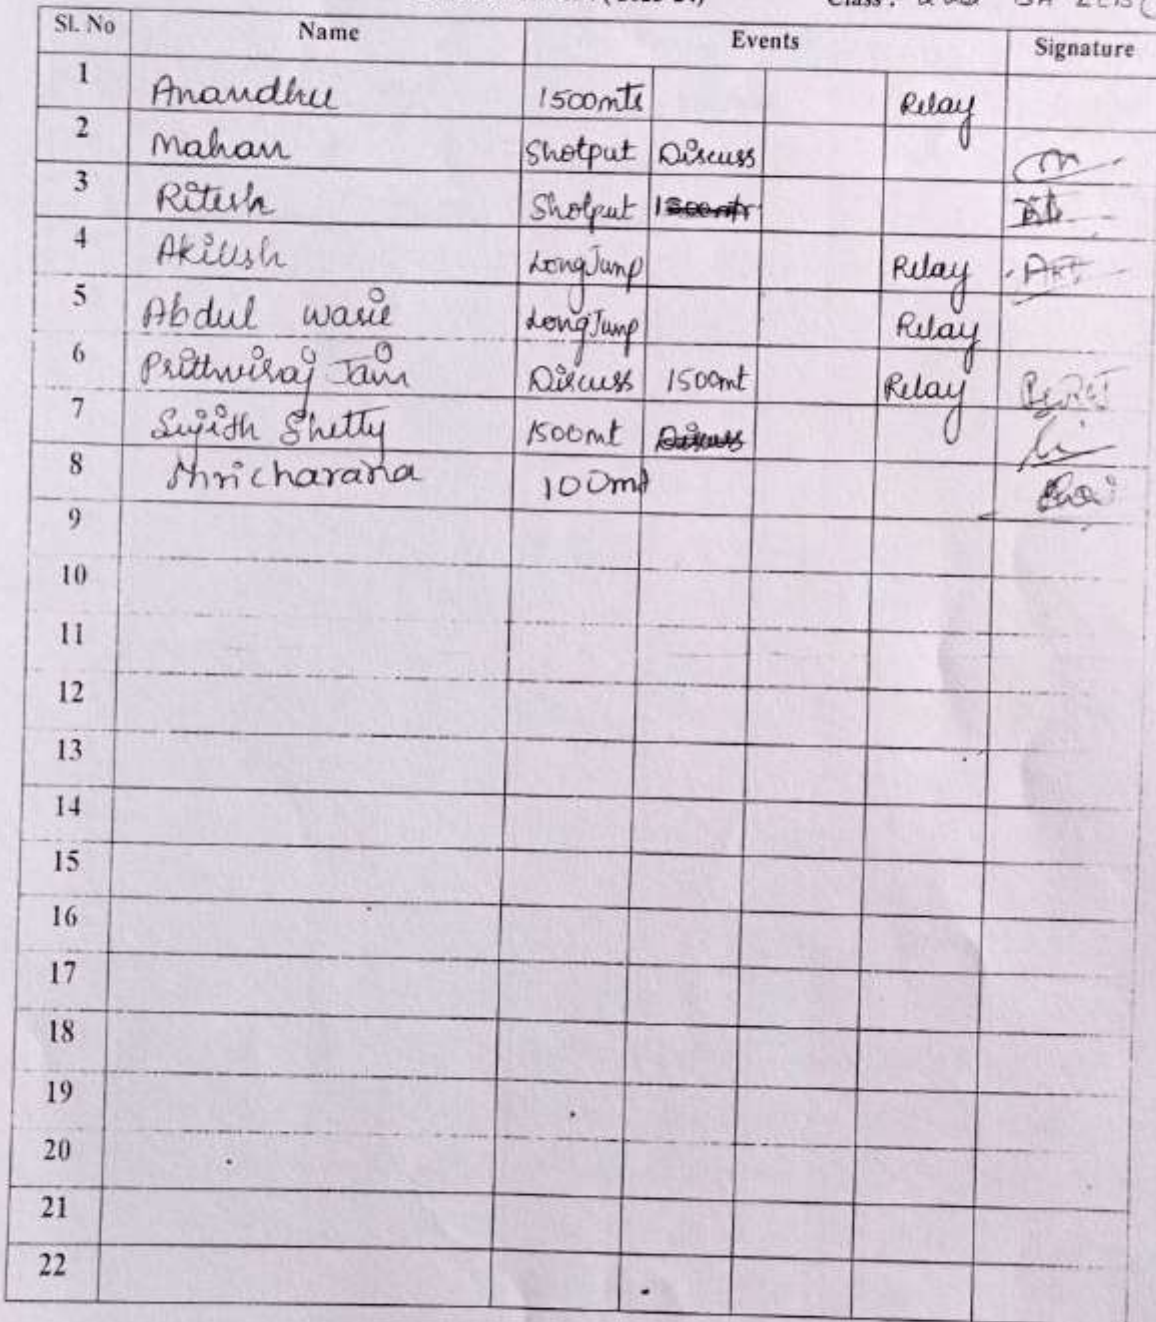 Class :
Sl. No Name Events Signature
1 Anandhu 1500mts Relay
2 Mahan Shotput Discuss
3 Ritesh Shotput
4 Akilesh Long Jump Relay
5 Abdul wasie Long Jump Relay
6 Prithviraj Jain Discuss 1500mt Relay
7 Sujith Shetty 1500mt Discuss
8 Shricharana 100mt
9
10
11
12
13
14
15
16
17
18
19
20
21
22